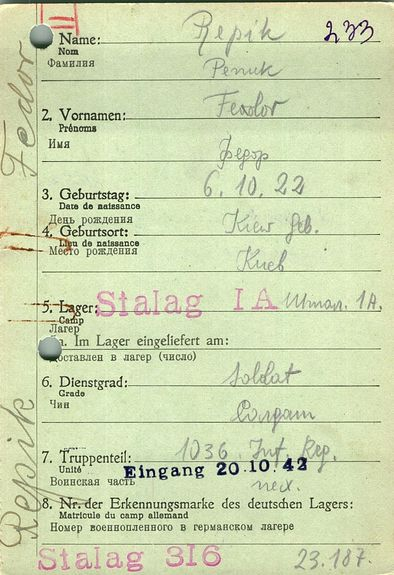 II
1. Name: Repik 233
Nom
Фамилия Репик
2. Vornamen: Feodor
Prénoms
Имя Федор
3. Geburtstag: 6. 10. 22
Date de naissance
День рождения
4. Geburtsort: Kiew Geb.
Lieu de naissance
Место рождения Киев
5. Lager: Stalag IA Штал. 1А.
Camp
Лагерь
a. Im Lager eingeliefert am:
Доставлен в лагерь (число)
6. Dienstgrad: Soldat
Grade
Чин Солдат
7. Truppenteil: 1036. Inf. Reg.
Unité
Eingang 20.10.42
Воинская часть пех.
8. Nr. der Erkennungsmarke des deutschen Lagers:
Matricule du camp allemand
Номер военнопленного в германском лагере
Stalag 316 23.187.
Repik Fedor